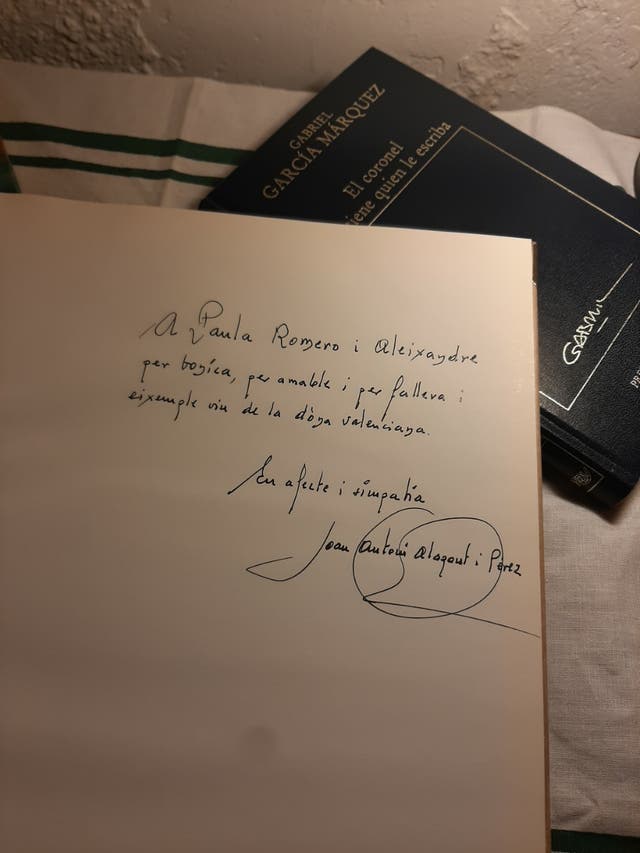 GABRIEL
GARCÍA MÁRQUEZ
El coronel
tiene quien le escriba
A Paula Romero i Aleixandre
per bonica, per amable i per fallera i
eixemple viu de la dòna valenciana.
En afecte i simpatía
Joan Antoni Alagont i Pérez